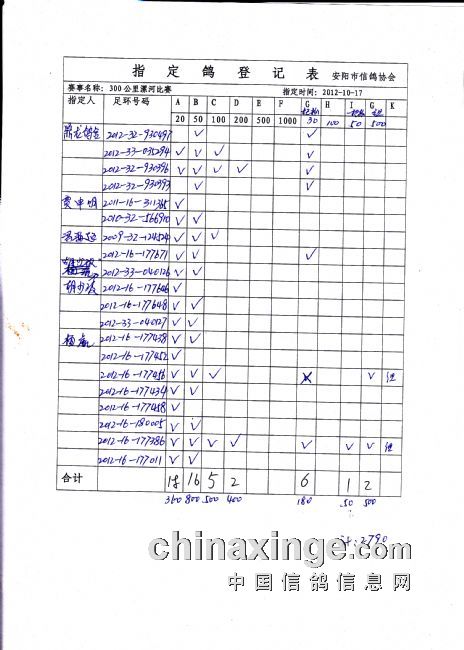 指定鸽登记表 安阳市信鸽协会
赛事名称：300公里漯河比赛 指定时间：2012-10-17
指定人 足环号码 A B C D E F G H I G K
20 50 100 200 500 1000 30 100 50 500
2012-32-930497 √ √
2012-33-035294 √ √ √ √
2012-32-930396 √ √ √ √ √
2012-32-930393 √ √
贾申明 2011-16-311365 √
2010-32-566910 √ √
2009-32-124524 √ √ √
2012-16-177671 √ √ √
2012-33-040126 √ √
2012-16-177606 √
2012-16-177648 √ √
2012-33-040127 √ √
杨嬴 2012-16-177438 √ √
2012-16-177452 √
2012-16-177456 √ √ √ √
2012-16-177434 √ √
2012-16-177458 √
2012-16-180005 √ √
2012-16-177386 √ √ √ √ √ √ √
2012-16-177011 √ √
合计 18 16 5 2 6 1 2
360 800 500 400 180 50 500
计：2790
chinaxinge.com
中国信鸽信息网